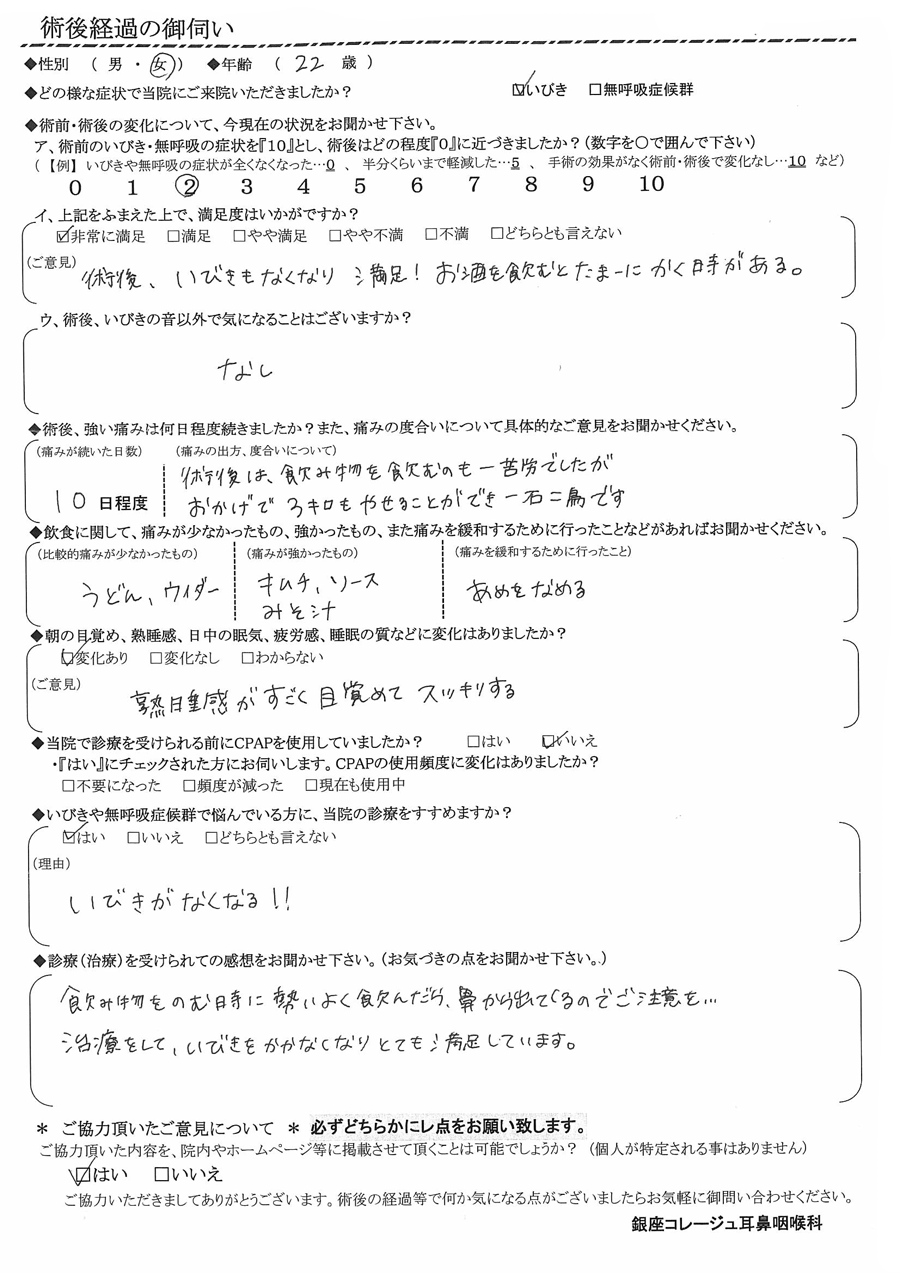 術後経過の御伺い
◆性別 ( 男 ・ 女 ) ◆年齢 ( 22 歳 )
◆どの様な症状で当院にご来院いただきましたか? ☑いびき □無呼吸症候群
◆術前・術後の変化について、今現在の状況をお聞かせ下さい。
ア、術前のいびき・無呼吸の症状を『10』とし、術後はどの程度『0』に近づきましたか?(数字を〇で囲んで下さい)
(【例】いびきや無呼吸の症状が全くなくなった…0 、 半分くらいまで軽減した…5 、 手術の効果がなく術前・術後で変化なし…10 など)
0 1 2 3 4 5 6 7 8 9 10
イ、上記をふまえた上で、満足度はいかがですか?
☑非常に満足 □満足 □やや満足 □やや不満 □不満 □どちらとも言えない
(ご意見) 術後、いびきもなくなり 満足! お酒を飲むとたまーにかく時がある。
ウ、術後、いびきの音以外で気になることはございますか?
なし
◆術後、強い痛みは何日程度続きましたか?また、痛みの度合いについて具体的なご意見をお聞かせください。
(痛みが続いた日数) (痛みの出方、度合いについて)
術後は、飲み物を飲むのも一苦労でしたが
10 日程度 おかげで 3キロもやせることができ一石二鳥です
◆飲食に関して、痛みが少なかったもの、強かったもの、また痛みを緩和するために行ったことなどがあればお聞かせください。
(比較的痛みが少なかったもの) (痛みが強かったもの) (痛みを緩和するために行ったこと)
うどん、ウイダー キムチ、ソース あめをなめる
みそ汁
◆朝の目覚め、熟睡感、日中の眠気、疲労感、睡眠の質などに変化はありましたか?
☑変化あり □変化なし □わからない
(ご意見) 熟睡感がすごく目覚めてスッキリする
◆当院で診療を受けられる前にCPAPを使用していましたか? □はい ☑いいえ
・『はい』にチェックされた方にお伺いします。CPAPの使用頻度に変化はありましたか?
□不要になった □頻度が減った □現在も使用中
◆いびきや無呼吸症候群で悩んでいる方に、当院の診療をすすめますか?
☑はい □いいえ □どちらとも言えない
(理由)
いびきがなくなる!!
◆診療(治療)を受けられての感想をお聞かせ下さい。(お気づきの点をお聞かせ下さい。)
飲み物をのむ時に勢いよく飲んだら、鼻から出れてくるのでご注意を…
治療をして、いびきをかかなくなりとても満足しています。
＊ ご協力頂いたご意見について ＊ 必ずどちらかにレ点をお願い致します。
ご協力頂いた内容を、院内やホームページ等に掲載させて頂くことは可能でしょうか? (個人が特定される事はありません)
☑はい □いいえ
ご協力いただきましてありがとうございます。術後の経過等で何か気になる点がございましたらお気軽に御問い合わせください。
銀座コレージュ耳鼻咽喉科